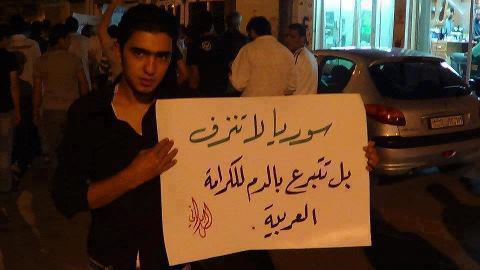 سوريا لا تنزف
بل تتبرع بالدم للكرامة
العربية.